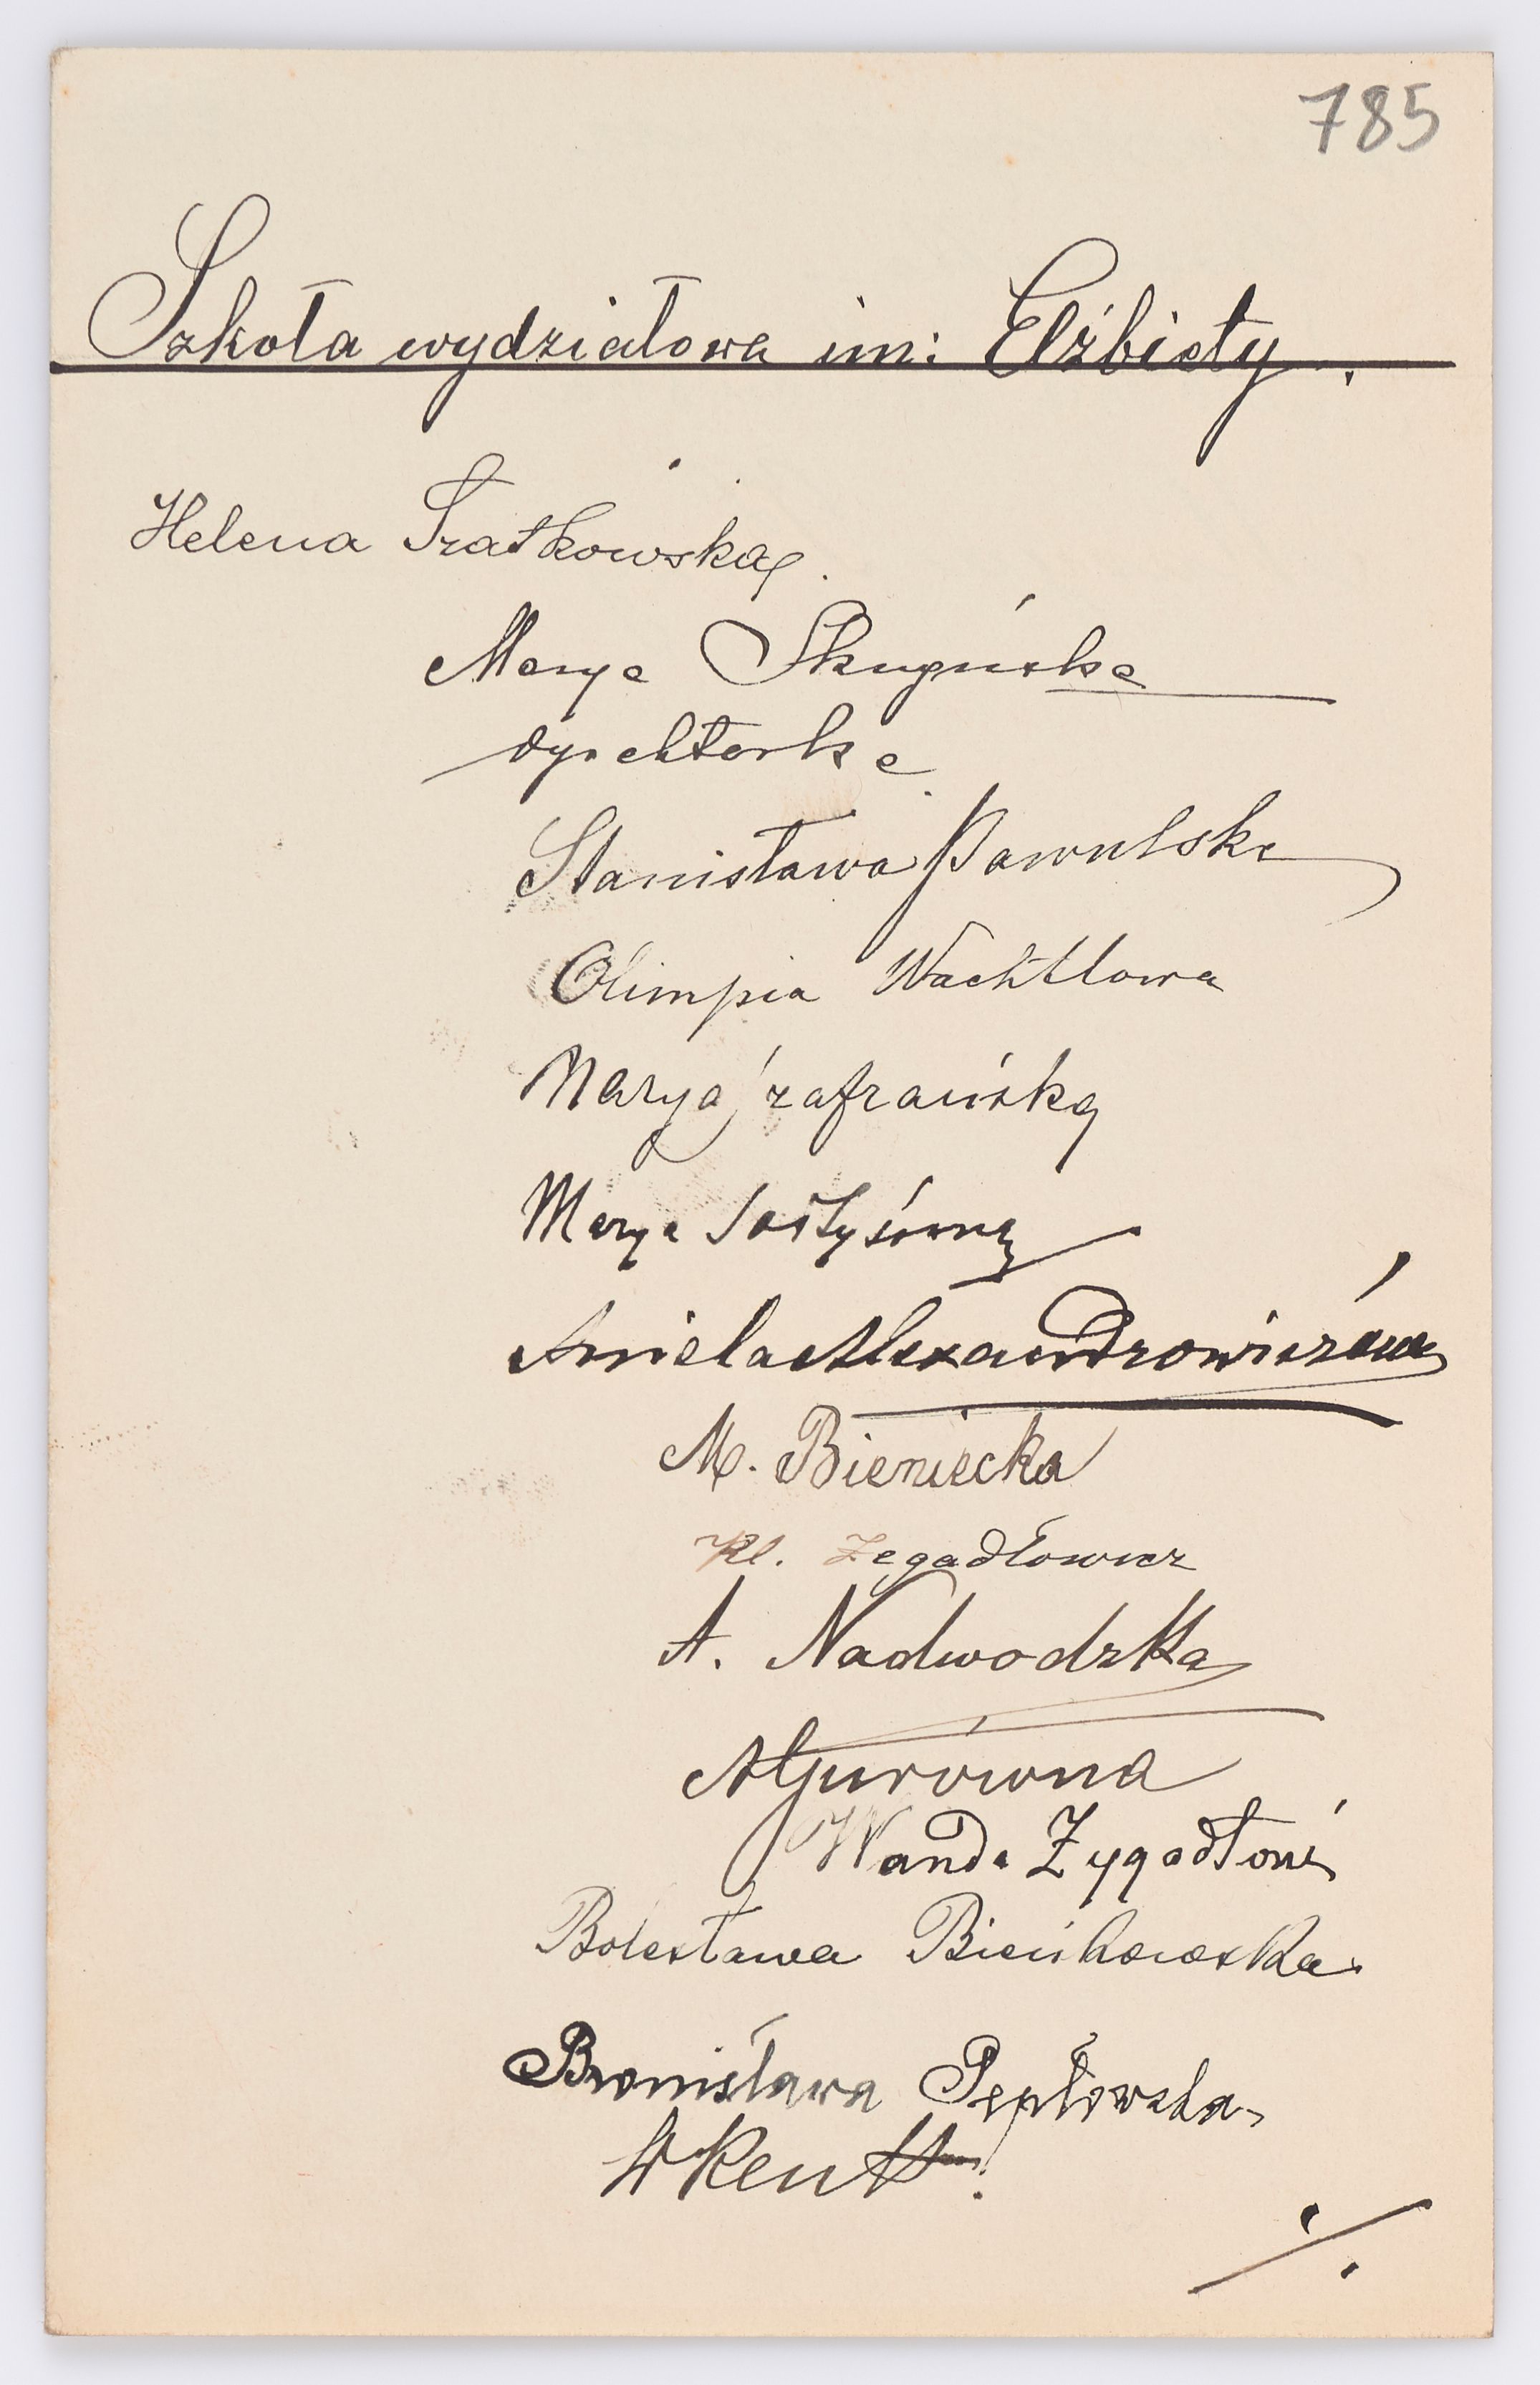 785
Szkoła wydziałowa im: Elżbiety.
Helena Szatkowska.
Marya
dyrektorka
Stanisława Pawulska
Olimpia Wachtlowa
Marya Szafrańska
Marya Sołtysówna
Aniela Alexandrowiczówna
M. Bieniecka
Kl. Zegadłowicz
A. Nadwodzka
Wanda
Bolesława Bieńkowska
Bronisława Pepłowska
./.